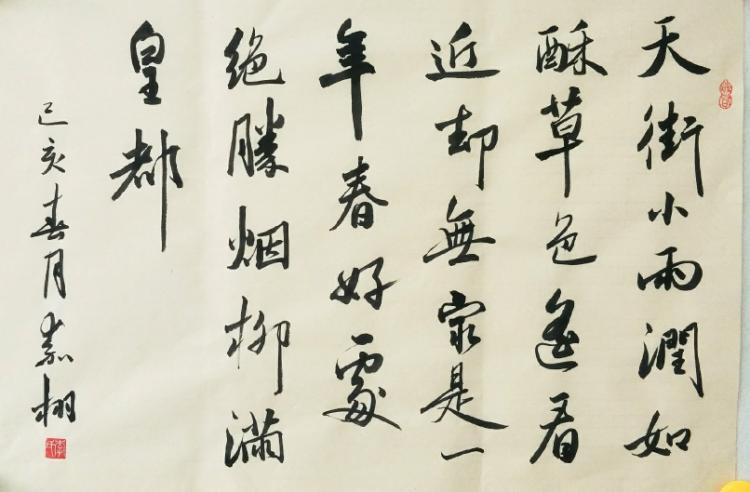 天街小雨潤如
酥草色遙看
近却無最是一
年春好處
絕勝烟柳滿
皇都
己亥春月嘉栩